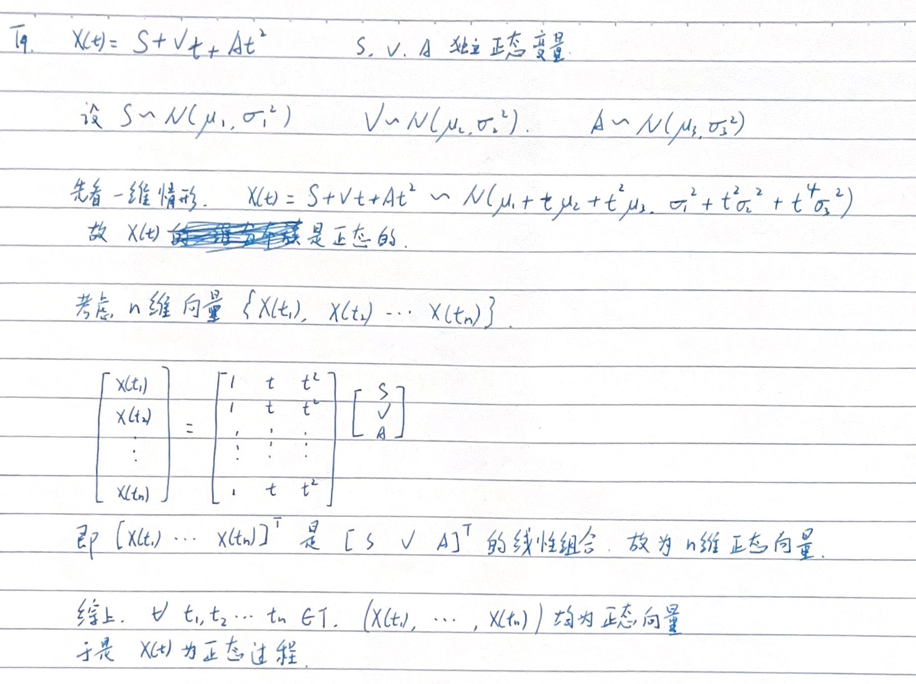 T9. X(t) = S + Vt + At² S. V. A 独立正态变量.
设 S ~ N(μ₁, σ₁²) V ~ N(μ₂, σ₂²). A ~ N(μ₃, σ₃²)
先看一维情形. X(t) = S + Vt + At² ~ N(μ₁ + tμ₂ + t²μ₃. σ₁² + t²σ₂² + t⁴σ₃²)
故 X(t) 是正态的.
考虑 n维向量 {X(t₁), X(t₂) ⋯ X(tₙ)}.
[X(t₁) X(t₂) ⋮ X(tₙ)] = [1 t t² 1 t t² ⋮ ⋮ ⋮ 1 t t²] [S V A]
即 [X(t₁) ⋯ X(tₙ)]ᵀ 是 [S V A]ᵀ 的线性组合. 故为 n维正态向量.
综上. ∀ t₁, t₂ ⋯ tₙ ∈T. (X(t₁), ⋯, X(tₙ)) 均为正态向量
于是 X(t) 为正态过程.